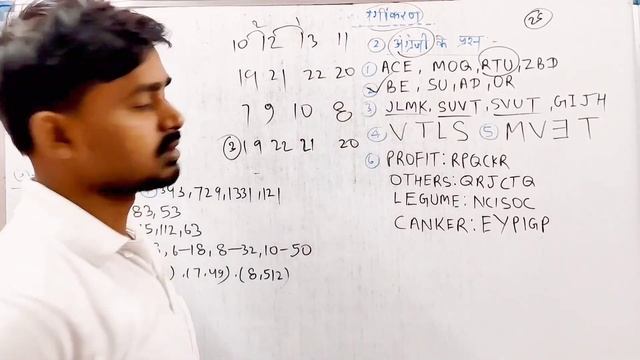 वर्गीकरण
25
② अंग्रेजी के प्रश्न
① ACE, MOQ, RTU, ZBD
② BE, SU, AD, OR
③ JLMK, SUVT, SVUT, GIJH
④ VTLS ⑤ MVƎT
⑥ PROFIT: RPQCKR
OTHERS: QRJCTQ
LEGUME: NCISOC
CANKER: EYPIGP
10 12 13 11
19 21 22 20
7 9 10 8
③ 19 22 21 20
343, 729, 1331, 121
83, 53
5, 112, 63
6-18, 8-32, 10-50
(7,49), (8,512)